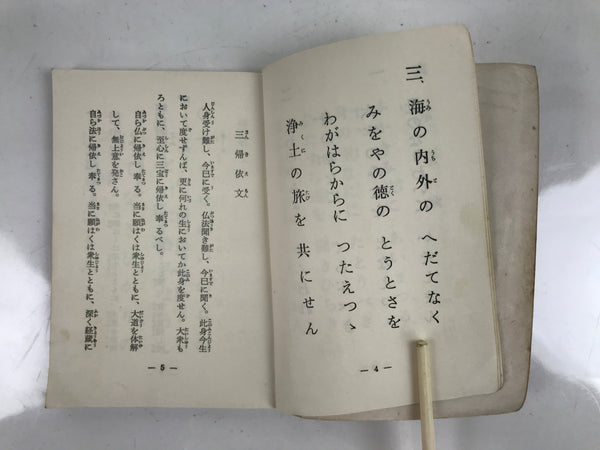 三、海の内外の へだてなく
みをやの徳の とうとさを
わがはらからに つたえつゝ
浄土の旅を 共にせん
— 4 —
三帰依文
人身受け難し、今已に受く。仏法聞き難し、今已に聞く。此身今生
において度せずんば、更に何れの生においてか此身を度せん。大衆も
ろともに、至心に三宝に帰依し奉るべし。
自ら仏に帰依し奉る。当に願はくは衆生とともに、大道を体解
して、無上意を発さん。
自ら法に帰依し奉る。当に願はくは衆生とともに、深く経蔵に
— 5 —